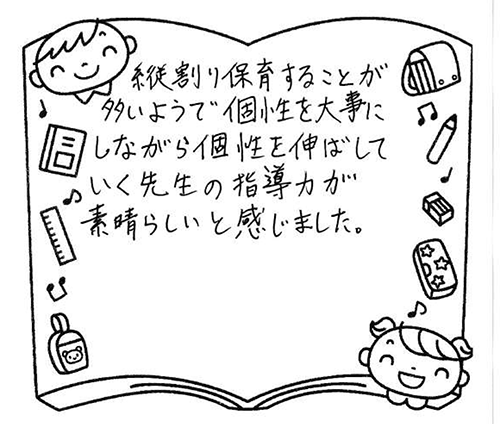 縦割り保育することが
多いようで個性を大事に
しながら個性を伸ばして
いく先生の指導力が
素晴らしいと感じました。